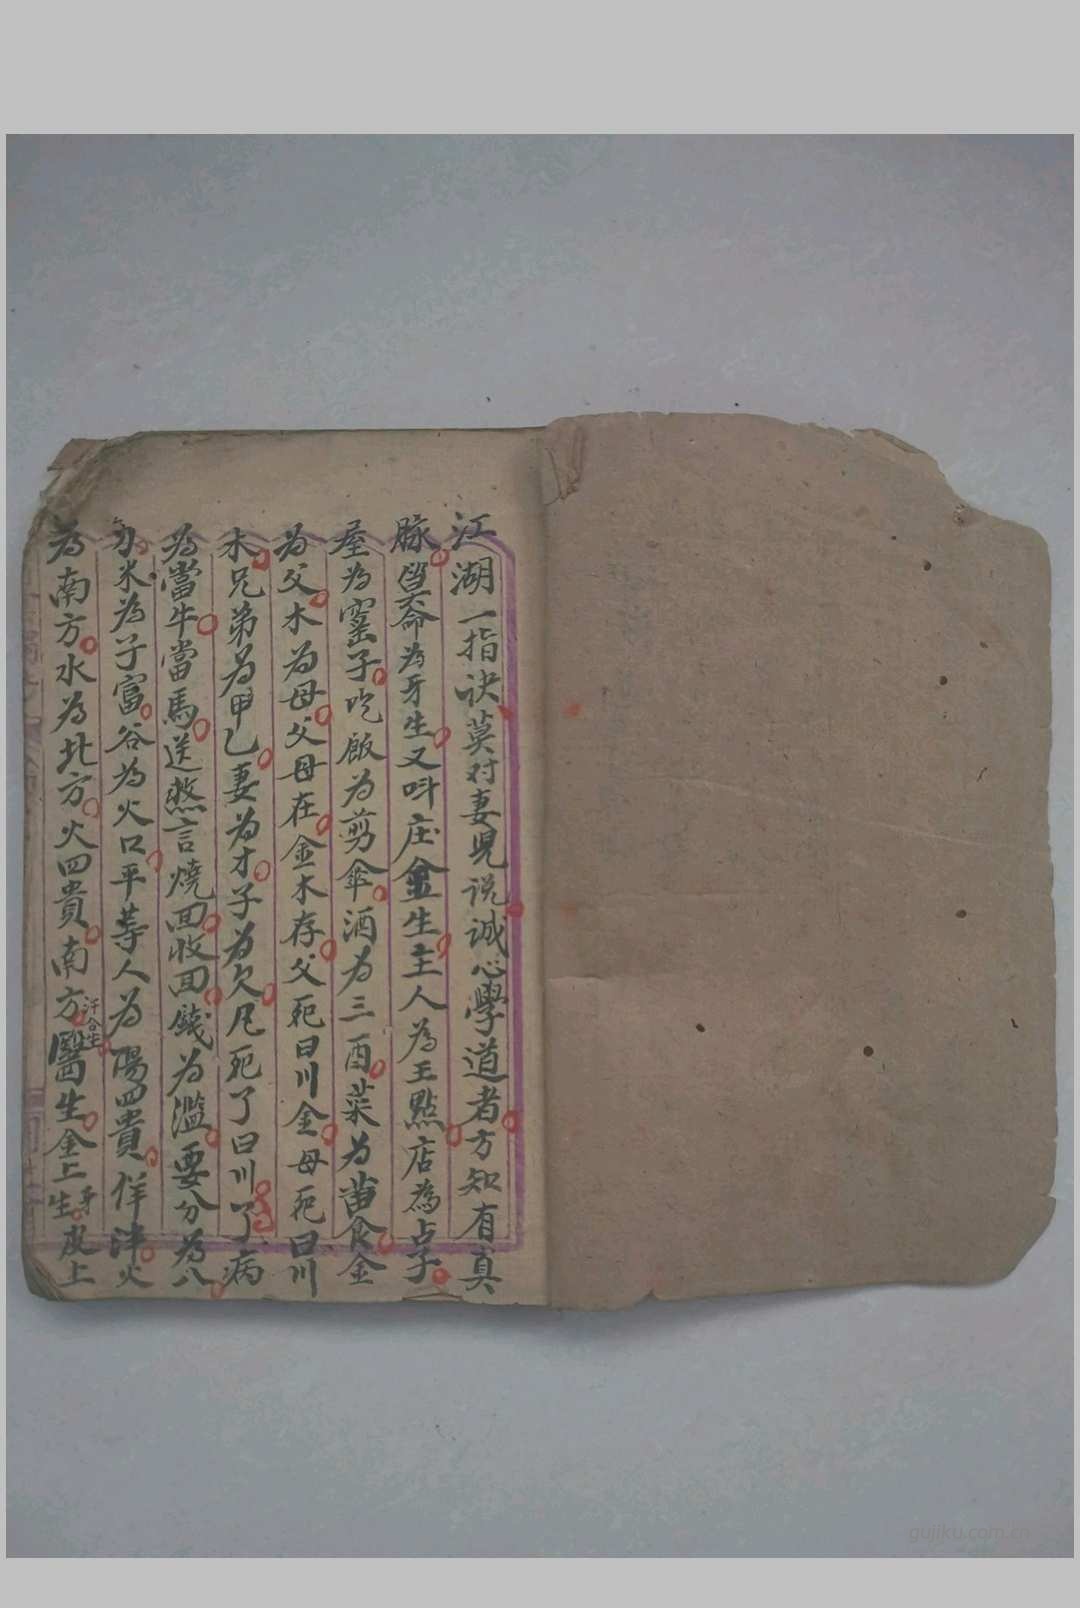 江湖一指訣莫对妻児说誠心學道者方知有真
脉筭命為牙生又呌庄金生主人為王點店為占子
屋为窰子吃飯为剪傘酒为三酉菜为苗食金
为父木为母父母在金木存父死曰川金母死曰川
木兄弟为甲乙妻为才子为欠凡死了曰川了病
為當牛當馬送憨言燒回收回錢为濫要分为八
勿米為子富谷为火口平等人为陽四貴佯津火
為南方水为北方火四貴南方醫生金上生牙皮上
許合生
gujiku.com.cn